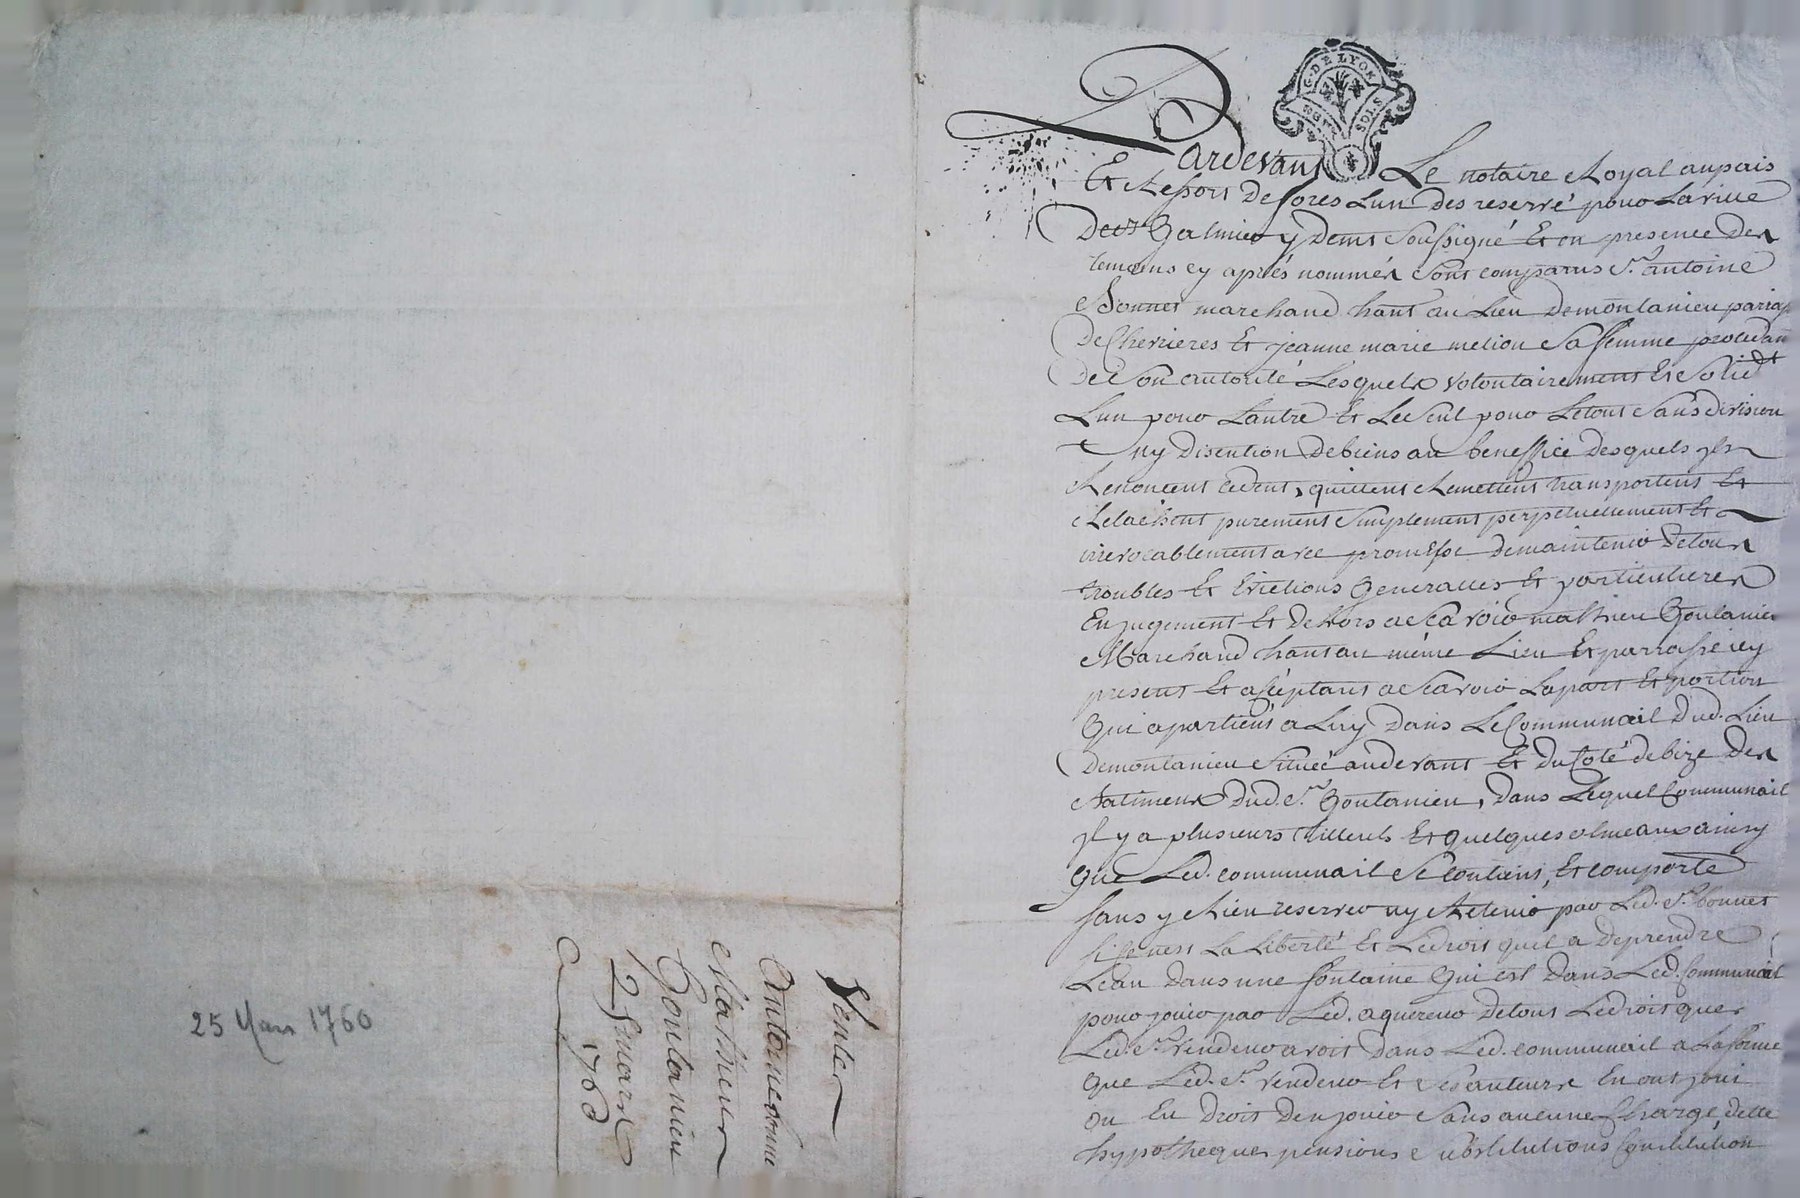 G. DE LYON
SOLS
Pardevant Le notaire Royal au pais
Et Ressort de fores Lun des reservé pour La ville
de St Galmier y demt soussigné Et en presence des
temoins cy aprés nommés sont comparus Sr. antoine
Bonnet marchand hant au Lieu de montanieu
De Chevrieres Et jeanne marie melion sa femme
de son autorité Lesquels volontairement Et solidt
Lun pour Lautre Et Le seul pour Le tout sans division
ny discution de biens au beneffice desquels ils
Renoncent cedent, quittent Remettent transportent Et
Relachent purement simplement perpetuellement Et
irrevocablement avec promesse de maintenir de tous
troubles Et Evictions Generalles Et particulieres
En jugement Et dehors a Scavoir mathieu Goutanieu
Marchand hant au même Lieu Et parroisse icy
present Et acceptant a Scavoir La part Et portion
Qui apartient a Luy dans Le Communail dud. Lieu
de montanieu située au devant Et du Coté de bize des
Batimens dud. Sr. Goutanieu, dans Lequel Communail
il y a plusieurs tilleuls Et quelques olmeaux ainsy
Que Led. communail se contient, Et comporte
sans y Rien reserver ny Retenir par Led. Sr. bonnet
si ce nest La Liberté Et Le droit quil a de prendre
Leau dans une fontaine Qui est dans Led. Communail
pour jouir par Led. aquereur de tous Le droit que
Led. Sr. vendeur avoit dans Led. communail a La forme
que Led. Sr. vendeur Et ses auteurs En ont joui
ou Eu droit den jouir sans aucune Charge, dette
hypotheques pensions substitutions Constitution
Vente
Antoine bonne
Mathieu
Goutanieu
25 mars
1760
25 Mars 1760